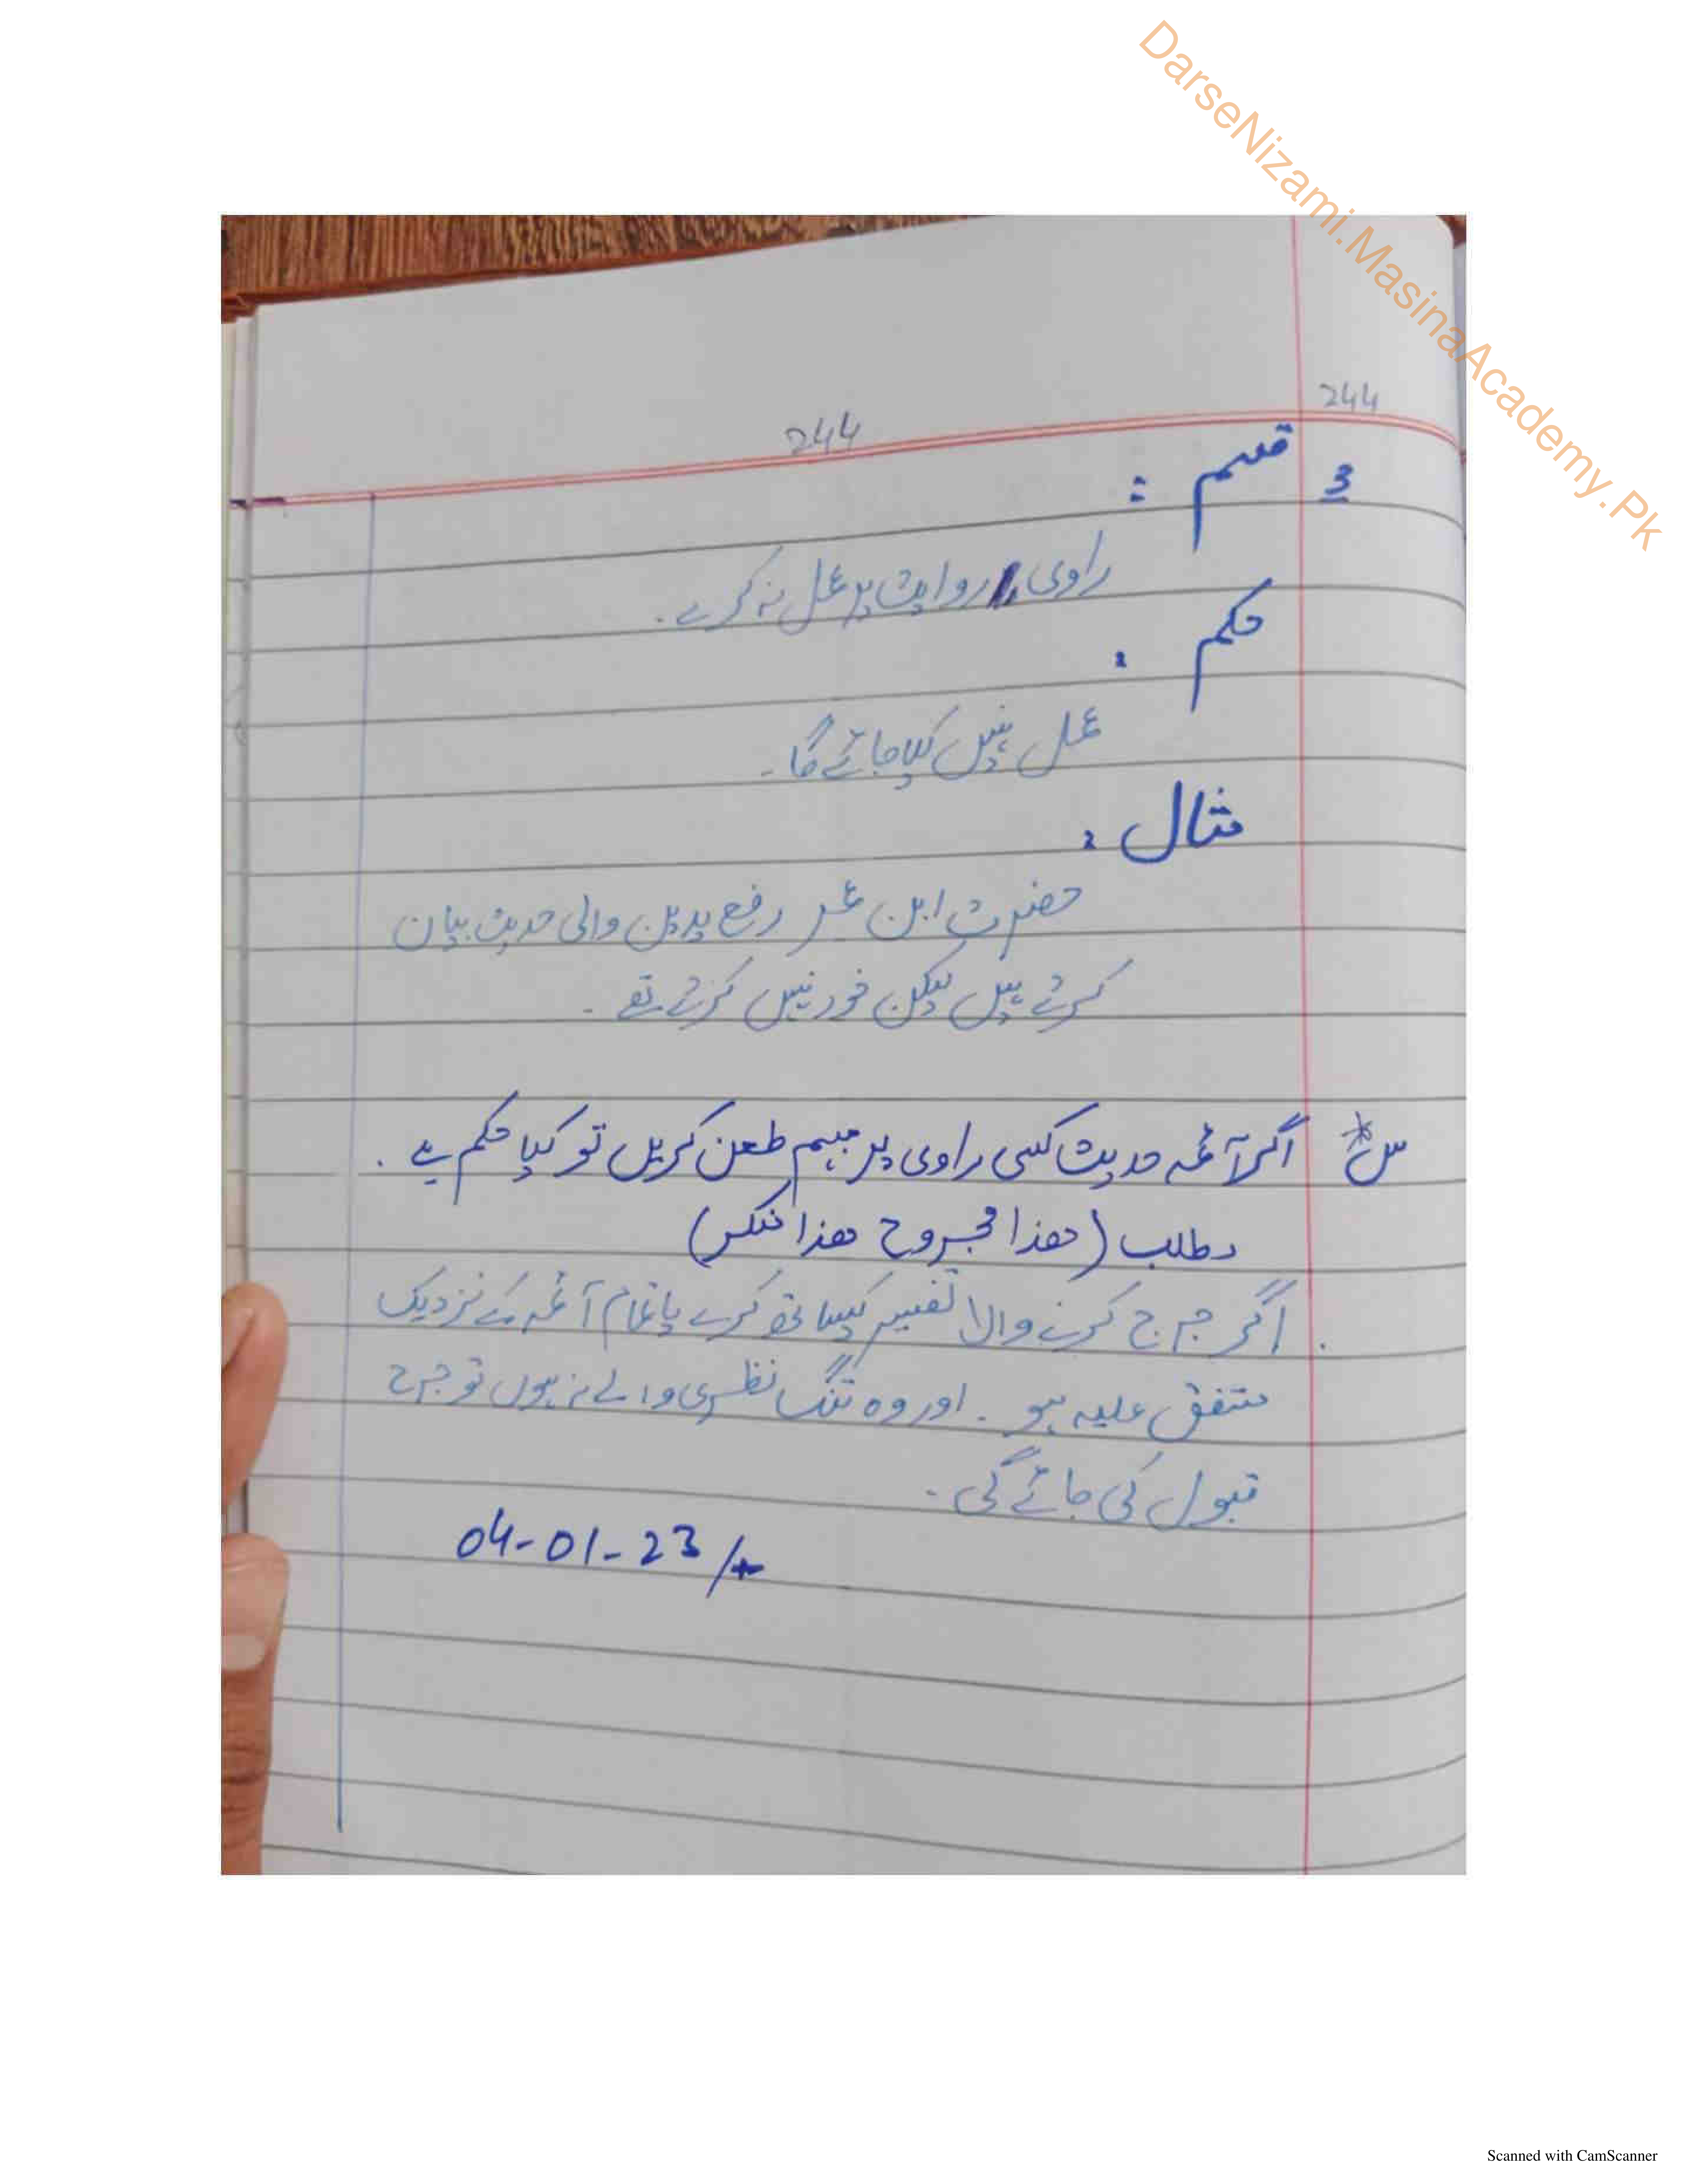 DarseNizami.MasinaAcademy.Pk
244
244
3 قسم :
راوی روایت پر عمل نہ کرے ۔
حکم :
عمل نہیں کیا جائے گا ۔
مثال :
حضرت ابن عمر رفع یدین والی حدیث بیان
کرتے ہیں لیکن خود نہیں کرتے تھے ۔
س* اگر آئمہ حدیث کسی راوی پر مبہم طعن کریں تو کیا حکم ہے ۔
مطلب (ھذا مجروح ھذا منکر)
. اگر جرح کرنے والا تفسیر کیساتھ کرے یا تمام آئمہ کے نزدیک
متفق علیہ ہو ۔ اور وہ تنگ نظری والے نہ ہوں تو جرح
قبول کی جائے گی ۔
04-01-23
Scanned with CamScanner